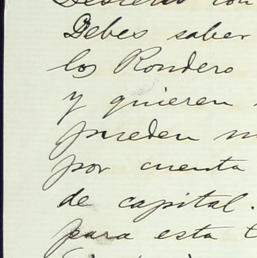 Debes saber
los Rondero
y quieren
pueden
por cuenta
de capital.
para esta